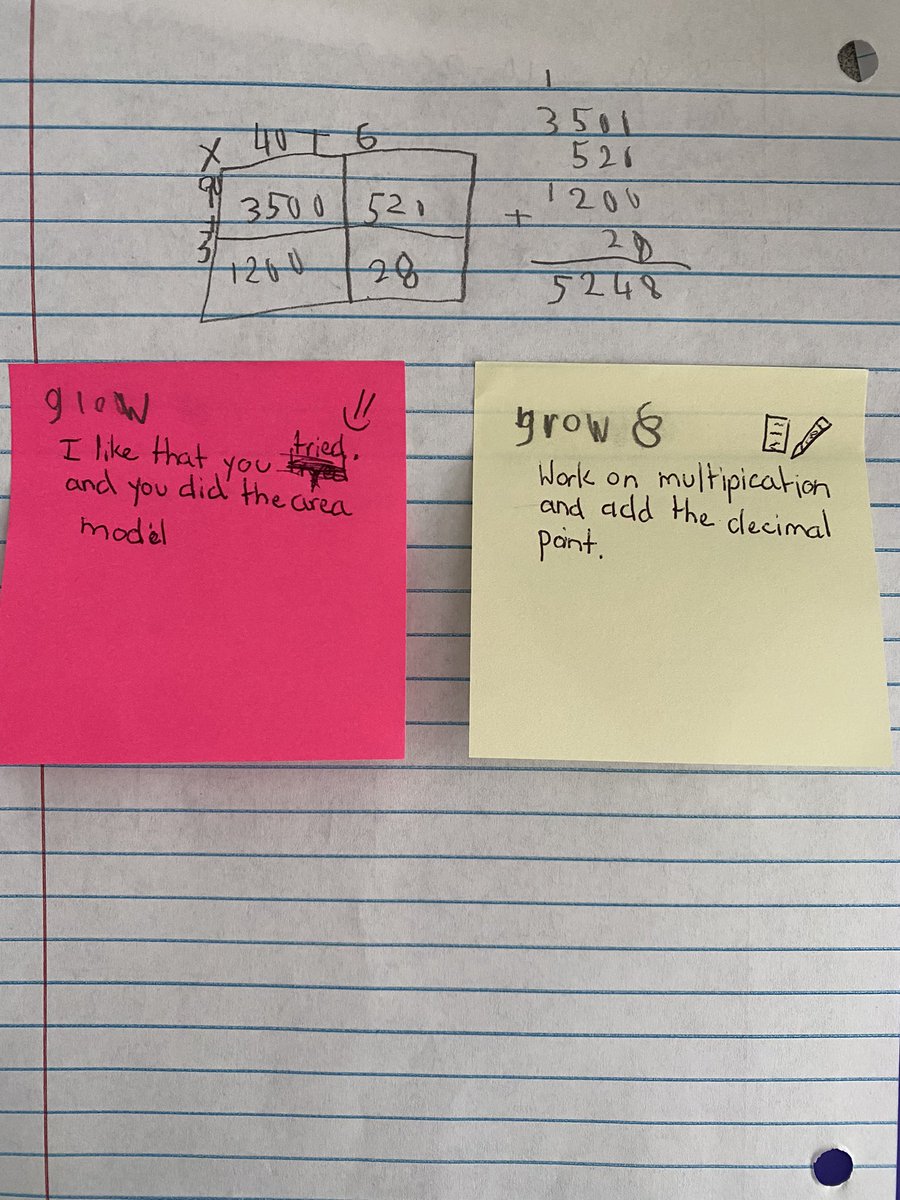 x 40 + 6
90 3500 521
+
3 1200 28
1
3501
521
+ 1200
20
5248
glow
I like that you tried.
and you did the area
model
grow
Work on multipication
and add the decimal
point.